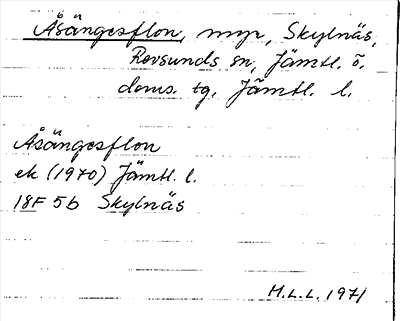 Åsängesflon, myr, Skylnäs,
Revsunds sn, Jämtl. ö.
doms. tg, Jämtl. l.
Åsängesflon
ek (1970) Jämtl. l.
18F 5b Skylnäs
M.L.L. 1971